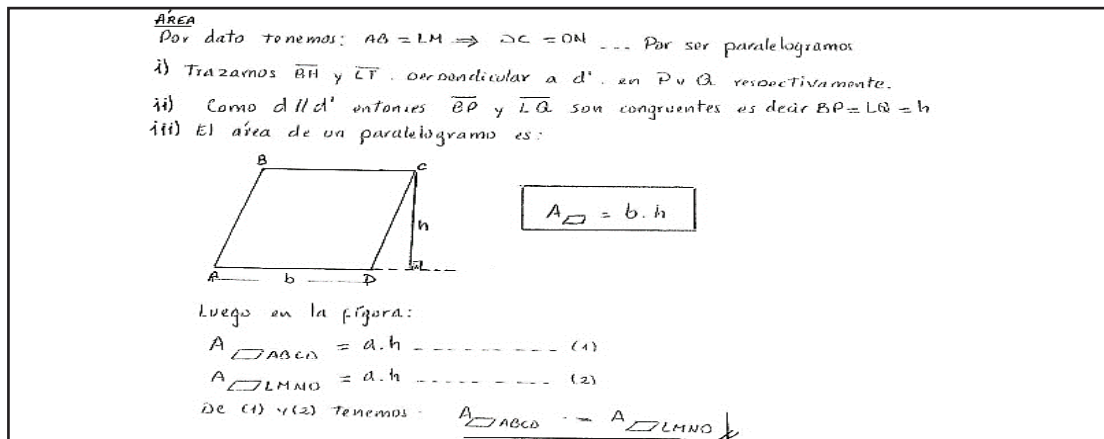 ÁREA
Por dato tenemos: AB = LM ⇒ DC = ON ... Por ser paralelogramos
i) Trazamos BH y LT. perpendicular a d'. en P y Q respectivamente.
ii) Como d // d' entonces BP y LQ son congruentes es decir BP = LQ = h
iii) El área de un paralelogramo es:
B C
h
A▱ = b.h
A b D
Luego en la figura:
A▱ABCD = a.h ---------- (1)
A▱LMNO = a.h ---------- (2)
De (1) y (2) Tenemos. A▱ABCD = A▱LMNO